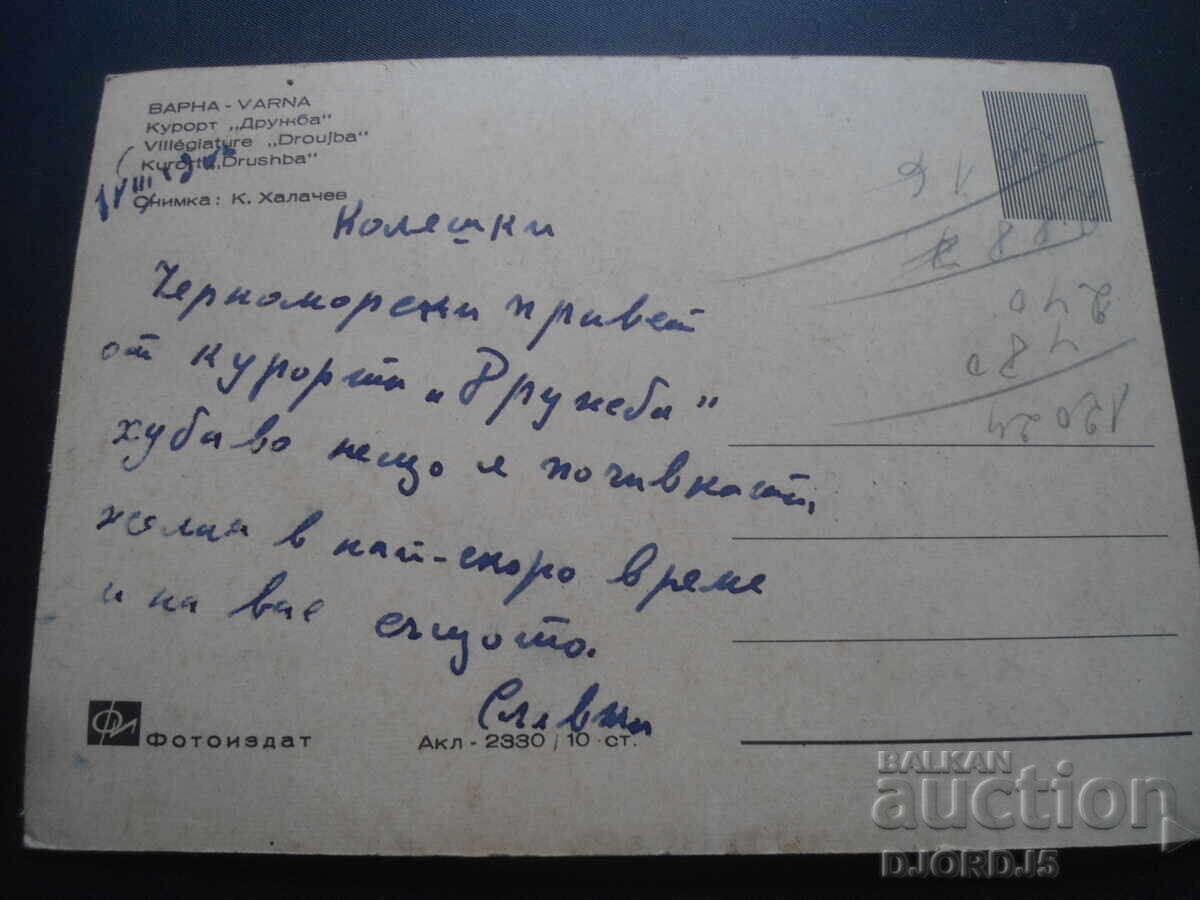 ВАРНА - VARNA
Курорт „Дружба"
Villégiature „Droujba"
Kurort „Drushba"
Снимка: К. Халачев
Колежки
Черноморски привет
от курорта „Дружба"
хубаво нещо е почивката,
желая в най-скоро време
и на вас същото.
Фотоиздат
Акл - 2330 / 10 ст.
240
480
12024
BALKAN
auction
DJORDJ5